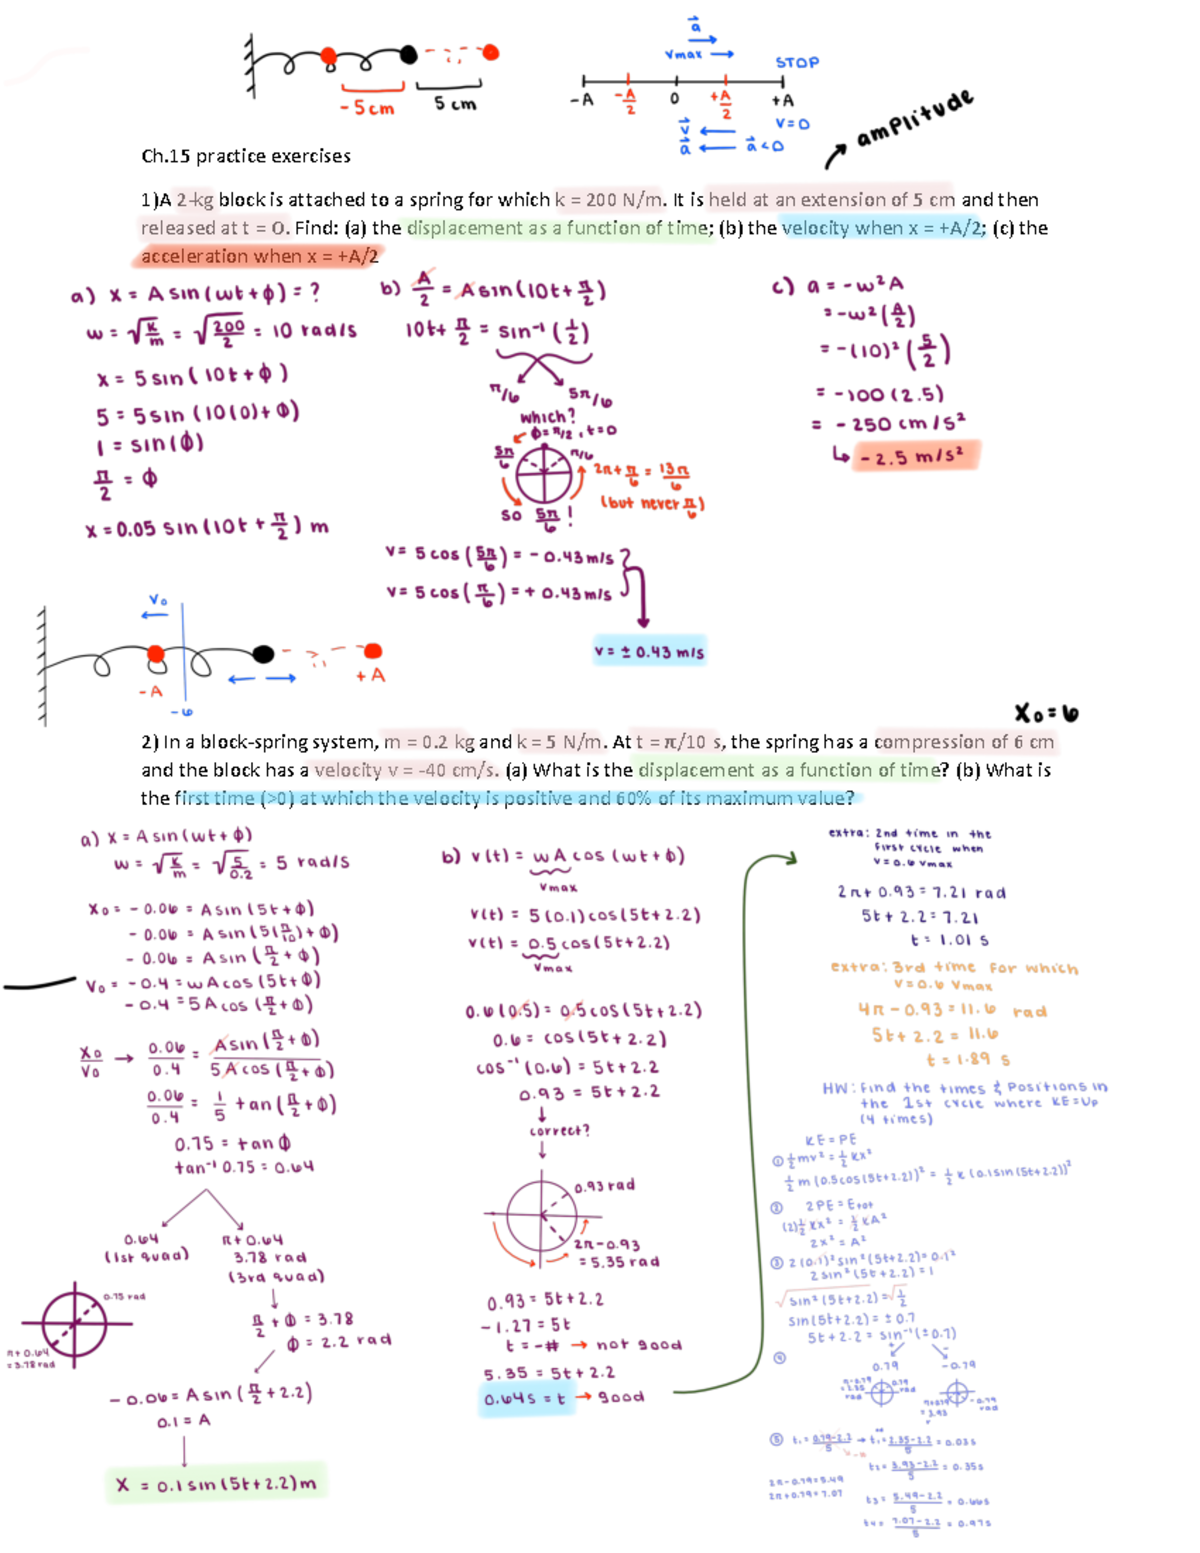 a
vmax
STOP
-A
-A/2
0
+A/2
+A
- 5 cm
5 cm
v
v=0
a
a<0
amplitude
Ch.15 practice exercises
1)A 2-kg block is attached to a spring for which k = 200 N/m. It is held at an extension of 5 cm and then
released at t = 0. Find: (a) the displacement as a function of time; (b) the velocity when x = +A/2; (c) the
acceleration when x = +A/2
a) x = A sin(wt+ϕ) = ?
w = √k/m = √200/2 = 10 rad/s
x = 5 sin( 10t+ϕ )
5 = 5 sin (10(0)+ϕ)
1 = sin(ϕ)
π/2 = ϕ
x = 0.05 sin (10t + π/2) m
b) A/2 = A sin(10t+π/2)
10t+ π/2 = sin⁻¹(1/2)
π/6
5π/6
which?
ϕ=π/2, t=0
5π/6
π/6
2π+π/6 = 13π/6
(but never π/6)
so 5π/6!
v= 5 cos(5π/6) = - 0.43 m/s
v= 5 cos(π/6) = + 0.43 m/s
v = ± 0.43 m/s
c) a = -w²A
= -w²(A/2)
= -(10)²(5/2)
= -100(2.5)
= -250 cm/s²
-2.5 m/s²
v₀
-A
+A
-6
x₀=6
2) In a block-spring system, m = 0.2 kg and k = 5 N/m. At t = π/10 s, the spring has a compression of 6 cm
and the block has a velocity v = -40 cm/s. (a) What is the displacement as a function of time? (b) What is
the first time (>0) at which the velocity is positive and 60% of its maximum value?
a) x = A sin(wt+ϕ)
w = √k/m = √5/0.2 = 5 rad/s
x₀ = - 0.06 = A sin(5t+ϕ)
- 0.06 = A sin(5(π/10)+ϕ)
- 0.06 = A sin(π/2 + ϕ)
v₀ = - 0.4 = wA cos(5t+ϕ)
- 0.4 = 5 A cos(π/2+ϕ)
x₀/v₀ → 0.06/0.4 = A sin(π/2+ϕ)/5 A cos(π/2+ϕ)
0.06/0.4 = 1/5 tan(π/2+ϕ)
0.75 = tan ϕ
tan⁻¹ 0.75 = 0.64
0.64
(1st quad)
π+0.64
3.78 rad
(3rd quad)
0.75 rad
π+0.64
= 3.78 rad
π/2 + ϕ = 3.78
ϕ = 2.2 rad
- 0.06 = A sin(π/2+2.2)
0.1 = A
x = 0.1 sin(5t+2.2)m
b) v(t) = wA cos (wt+ϕ)
vmax
v(t) = 5(0.1)cos(5t+2.2)
v(t) = 0.5 cos(5t+2.2)
vmax
0.6(0.5) = 0.5cos(5t+2.2)
0.6 = cos(5t+2.2)
cos⁻¹(0.6) = 5t+2.2
0.93 = 5t+2.2
correct?
0.93 rad
2π-0.93
= 5.35 rad
0.93 = 5t+2.2
-1.27 = 5t
t = -# → not good
5.35 = 5t+2.2
0.64s = t → good
extra: 2nd time in the
first cycle when
v=0.6 vmax
2π+ 0.93 = 7.21 rad
5t+ 2.2 = 7.21
t = 1.01 s
extra: 3rd time for which
v=0.6 vmax
4π - 0.93 = 11.6 rad
5t+ 2.2 = 11.6
t = 1.89 s
HW: find the times & positions in
the 1st cycle where KE=Up
(4 times)
KE = PE
① ½mv² = ½kx²
½ m (0.5cos(5t+2.2))² = ½ k (0.1sin(5t+2.2))²
② 2PE = Etot
(2)½ kx² = ½ kA²
2x² = A²
③ 2(0.1)² sin²(5t+2.2) = 0.1²
2 sin²(5t+2.2) = 1
√sin²(5t+2.2) = √½
sin(5t+2.2) = ± 0.7
5t+2.2 = sin⁻¹(±0.7)
④
0.79
-0.79
π-0.79
= 2.35
rad
0.79
rad
π+0.79
= 3.93
-0.79
rad
⑤ t₁ = 0.79-2.2/5 → t₁ = 2.35-2.2/5 = 0.03s
t₂ = 3.93-2.2/5 = 0.35s
2π-0.79=5.49
2π+0.79=7.07
t₃ = 5.49-2.2/5 = 0.66s
t₄ = 7.07-2.2/5 = 0.97s